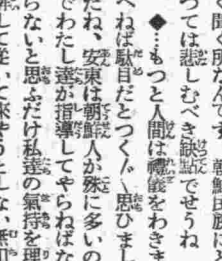 つては悲しむべき缺點でせうね
◆…もつと人間は禮儀をわきま
へねば駄目だとつく〴〵思ひまし
たね、安東は朝鮮人が殊に多いの
でわたし達が指導してやらねばな
らないと思ふだけ私達の氣持を理